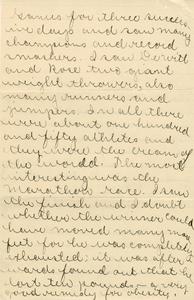 games for three success
ive days and saw many
champions and record
smashers. I saw
and Rose two giant
weight throwers, also
many runners and
jumpers. In all there
were about one hundred
and fifty athletes and
they were the cream of
the world. The most
interesting was the
Marathon race. I saw
the finish and I doubt
whether the winner could
have moved many more
feet for he was completely
exhausted; it was after
wards found out that he
lost ten pounds - a very
good remedy for obesity.